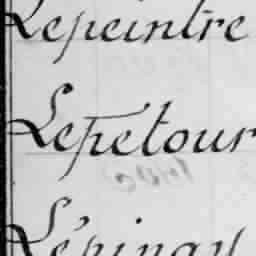 Lepeintre
Lepetour
Lépinay